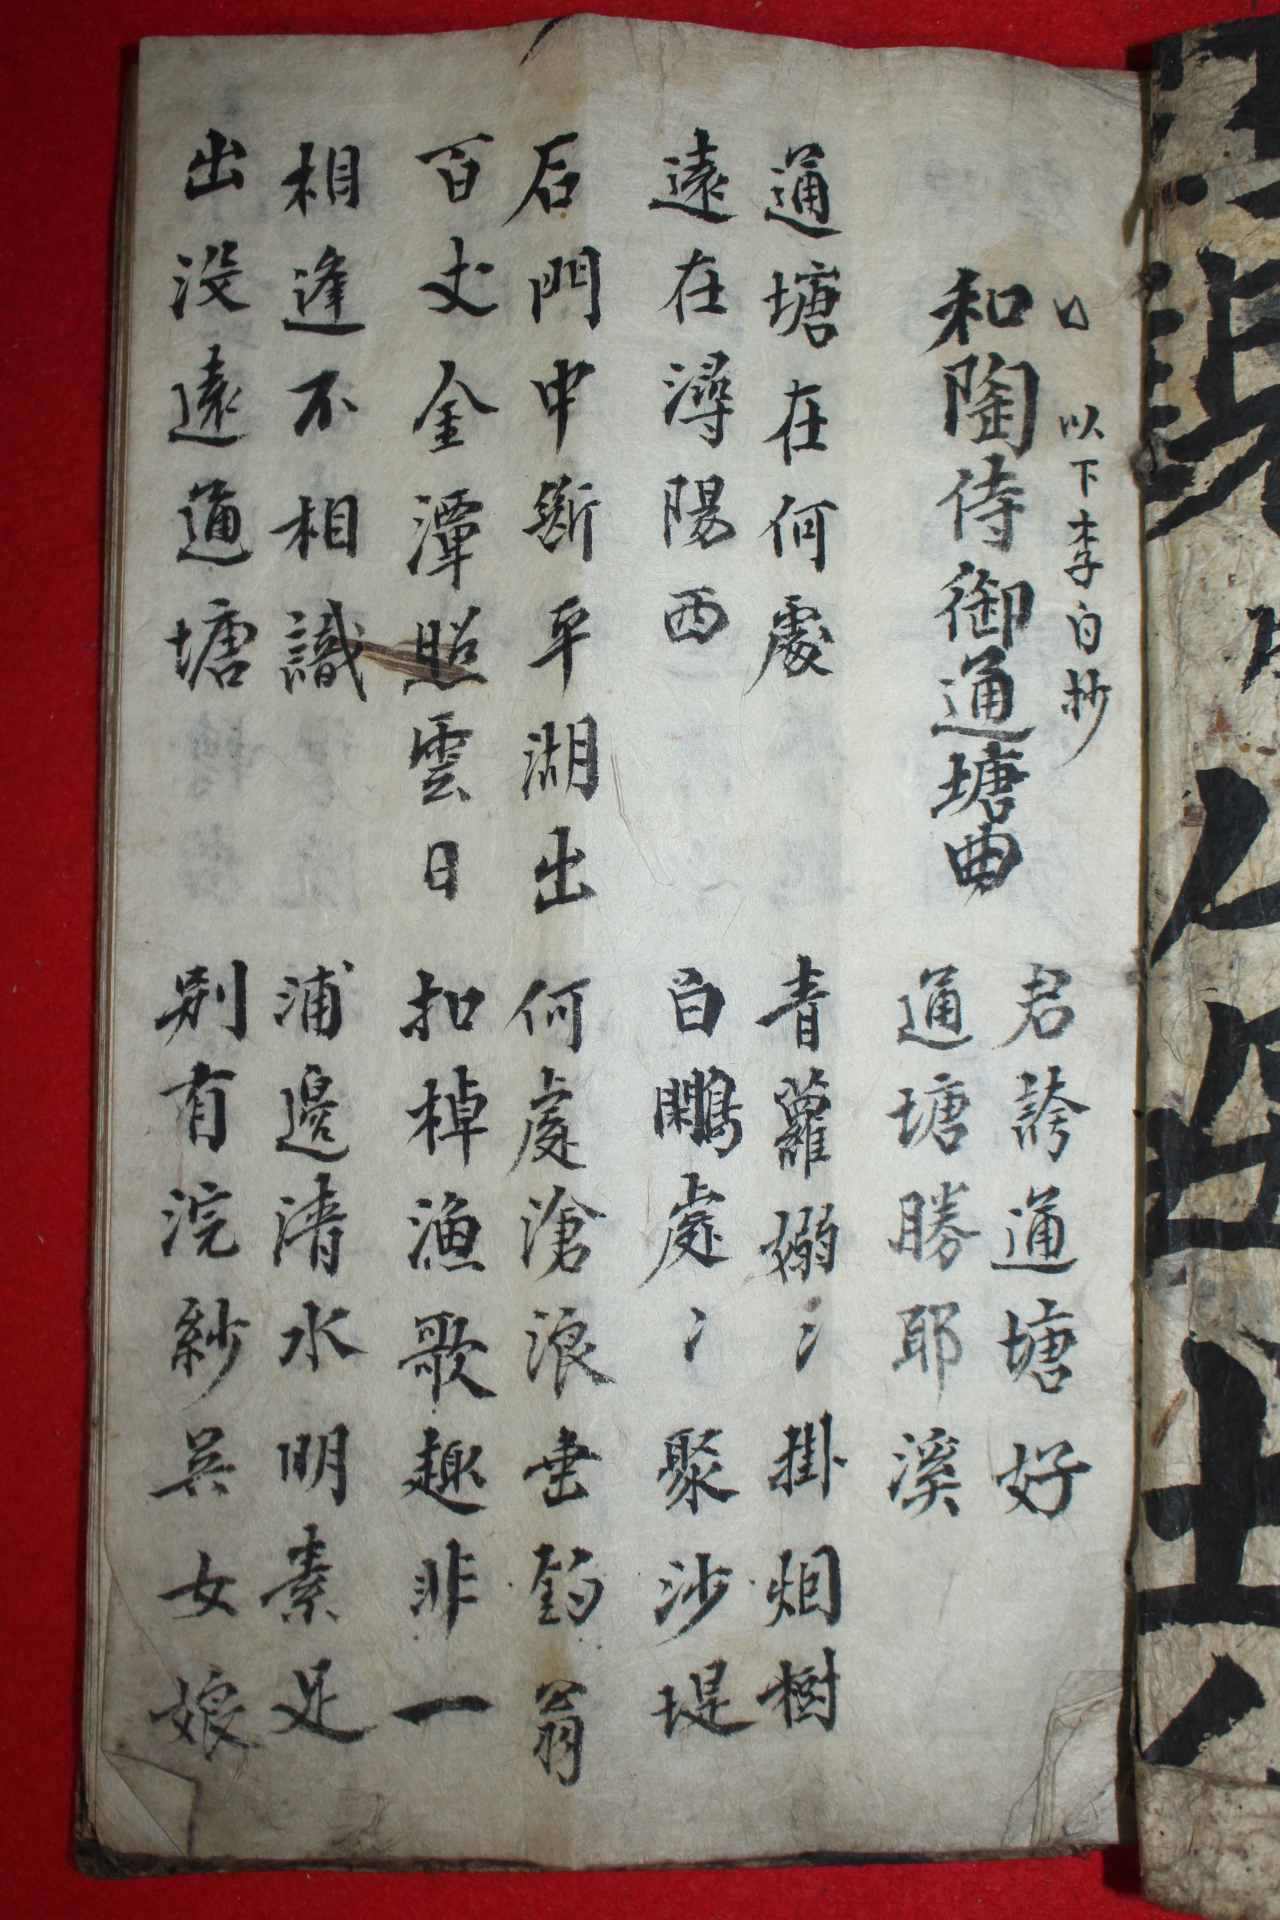 以下李白抄
和陶侍御通塘曲
君誇通塘好
通塘勝耶溪
通塘在何處
遠在潯陽西
青蘿嫋〻掛烟樹
白鷳處〻聚沙堤
石門中斷平湖出
百丈金潭照雲日
何處滄浪垂釣翁
扣棹漁歌趣非一
相逢不相識
出没遠通塘
浦邊清水明素足
別有浣紗吳女娘